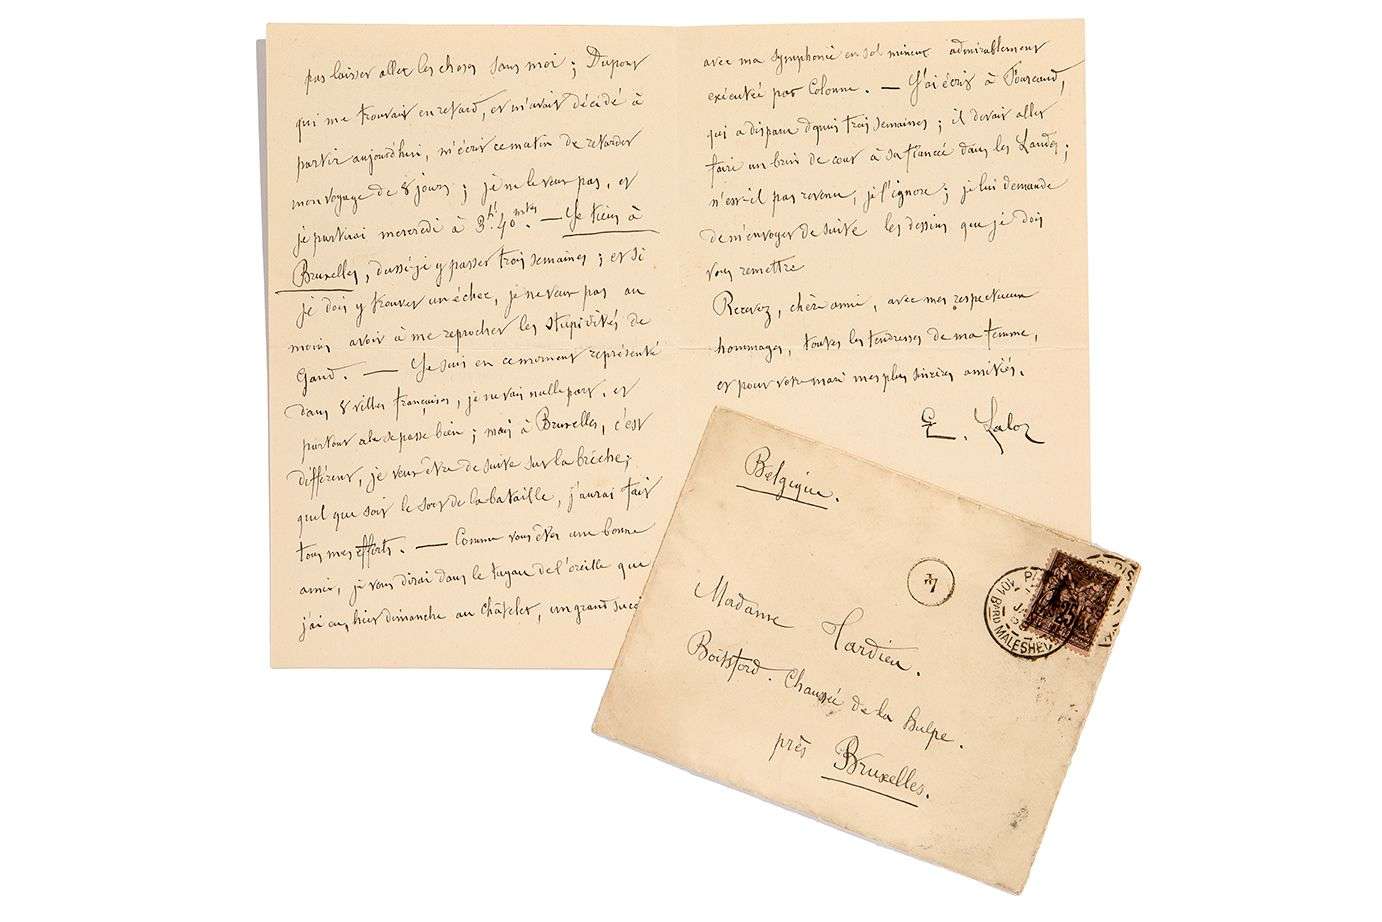 pas laisser aller les choses sans moi ; Dupont
qui me trouvait en retard, et m'avait décidé à
partir aujourd'hui, m'écrit ce matin de retarder
mon voyage de 8 jours ; je ne le veux pas, et
je partirai mercredi à 3h. 40 mtes. — Je tiens à
Bruxelles, dussé-je y passer trois semaines ; et si
je dois y trouver un échec, je ne veux pas au
moins avoir à me reprocher les stupidités de
Gand. — Je suis en ce moment représenté
dans 8 villes françaises, je ne vais nulle part, et
partout cela se passe bien ; mais à Bruxelles, c'est
différent, je veux être de suite sur la brèche ;
quel que soit le sort de la bataille, j'aurai fait
tous mes efforts. — Comme vous êtes une bonne
amie, je vous dirai dans le tuyau de l'oreille que
j'ai eu, hier dimanche au Châtelet, un grand succès
avec ma symphonie en sol mineur admirablement
exécutée par Colonne. — J'ai écrit à Fourcaud,
qui a disparu depuis trois semaines ; il devait aller
faire un brin de cour à sa fiancée dans les Landes ;
n'est-il pas revenu, je l'ignore ; je lui demande
de m'envoyer de suite les dessins que je dois
vous remettre
Recevez, chère amie, avec mes respectueux
hommages, toutes les tendresses de ma femme,
et pour votre mari mes plus sincères amitiés.
E. Lalo
Belgique.
Madame Tardieu.
Boitsford. Chaussée de la Hulpe.
près Bruxelles.
101 Bard MALESHE
25